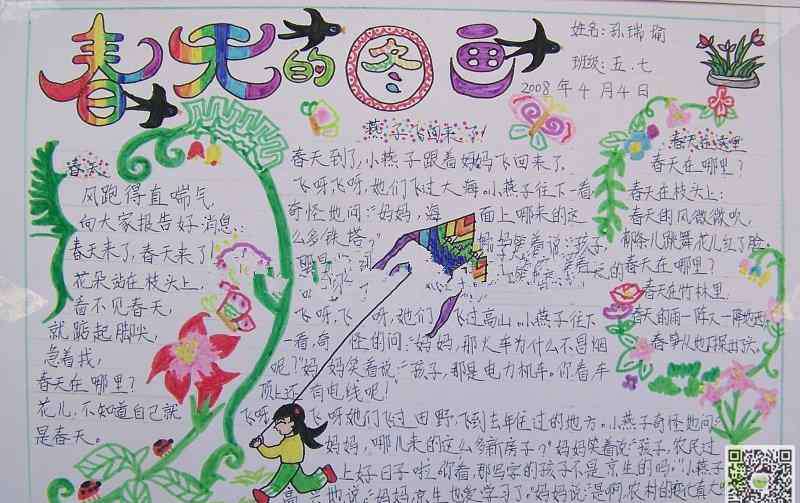 春天的图画
姓名:孙瑞瑜
班级:五.七
2008年4月4日
春天
风跑得直喘气,
向大家报告好消息:
春天来了,春天来了!
花朵站在枝头上,
看不见春天,
就踮起脚尖,
急着找,
春天在哪里?
花儿,不知道自己就
是春天。
燕子飞回来了!
春天到了,小燕子跟着妈妈飞回来了.
飞呀,飞呀,她们飞过大海。小燕子往下一看
奇怪地问:"妈妈,海面上哪来的这
么多铁塔?"妈妈笑着说:"孩子,
飞呀,飞呀,她们飞过高山。小燕子往下
一看,奇怪的问:"妈妈,那火车为什么不冒烟
呢?"妈妈笑着说:"孩子,那是电力机车。你看车
顶上还有电线呢!
飞呀,飞呀她们飞过田野,飞到去年住过的地方。小燕子奇怪地问:"
妈妈,哪儿来的这么多新房子?"妈妈笑着说:"孩子,农民过
上好日子啦
春天在哪里
春天在哪里?
春天在枝头上:
春天的风微微吹,
柳条儿跳舞花儿红了脸。
春天在哪里?
春天在竹林里
春天的雨一阵又一阵地洒,
春笋从地下探出头。